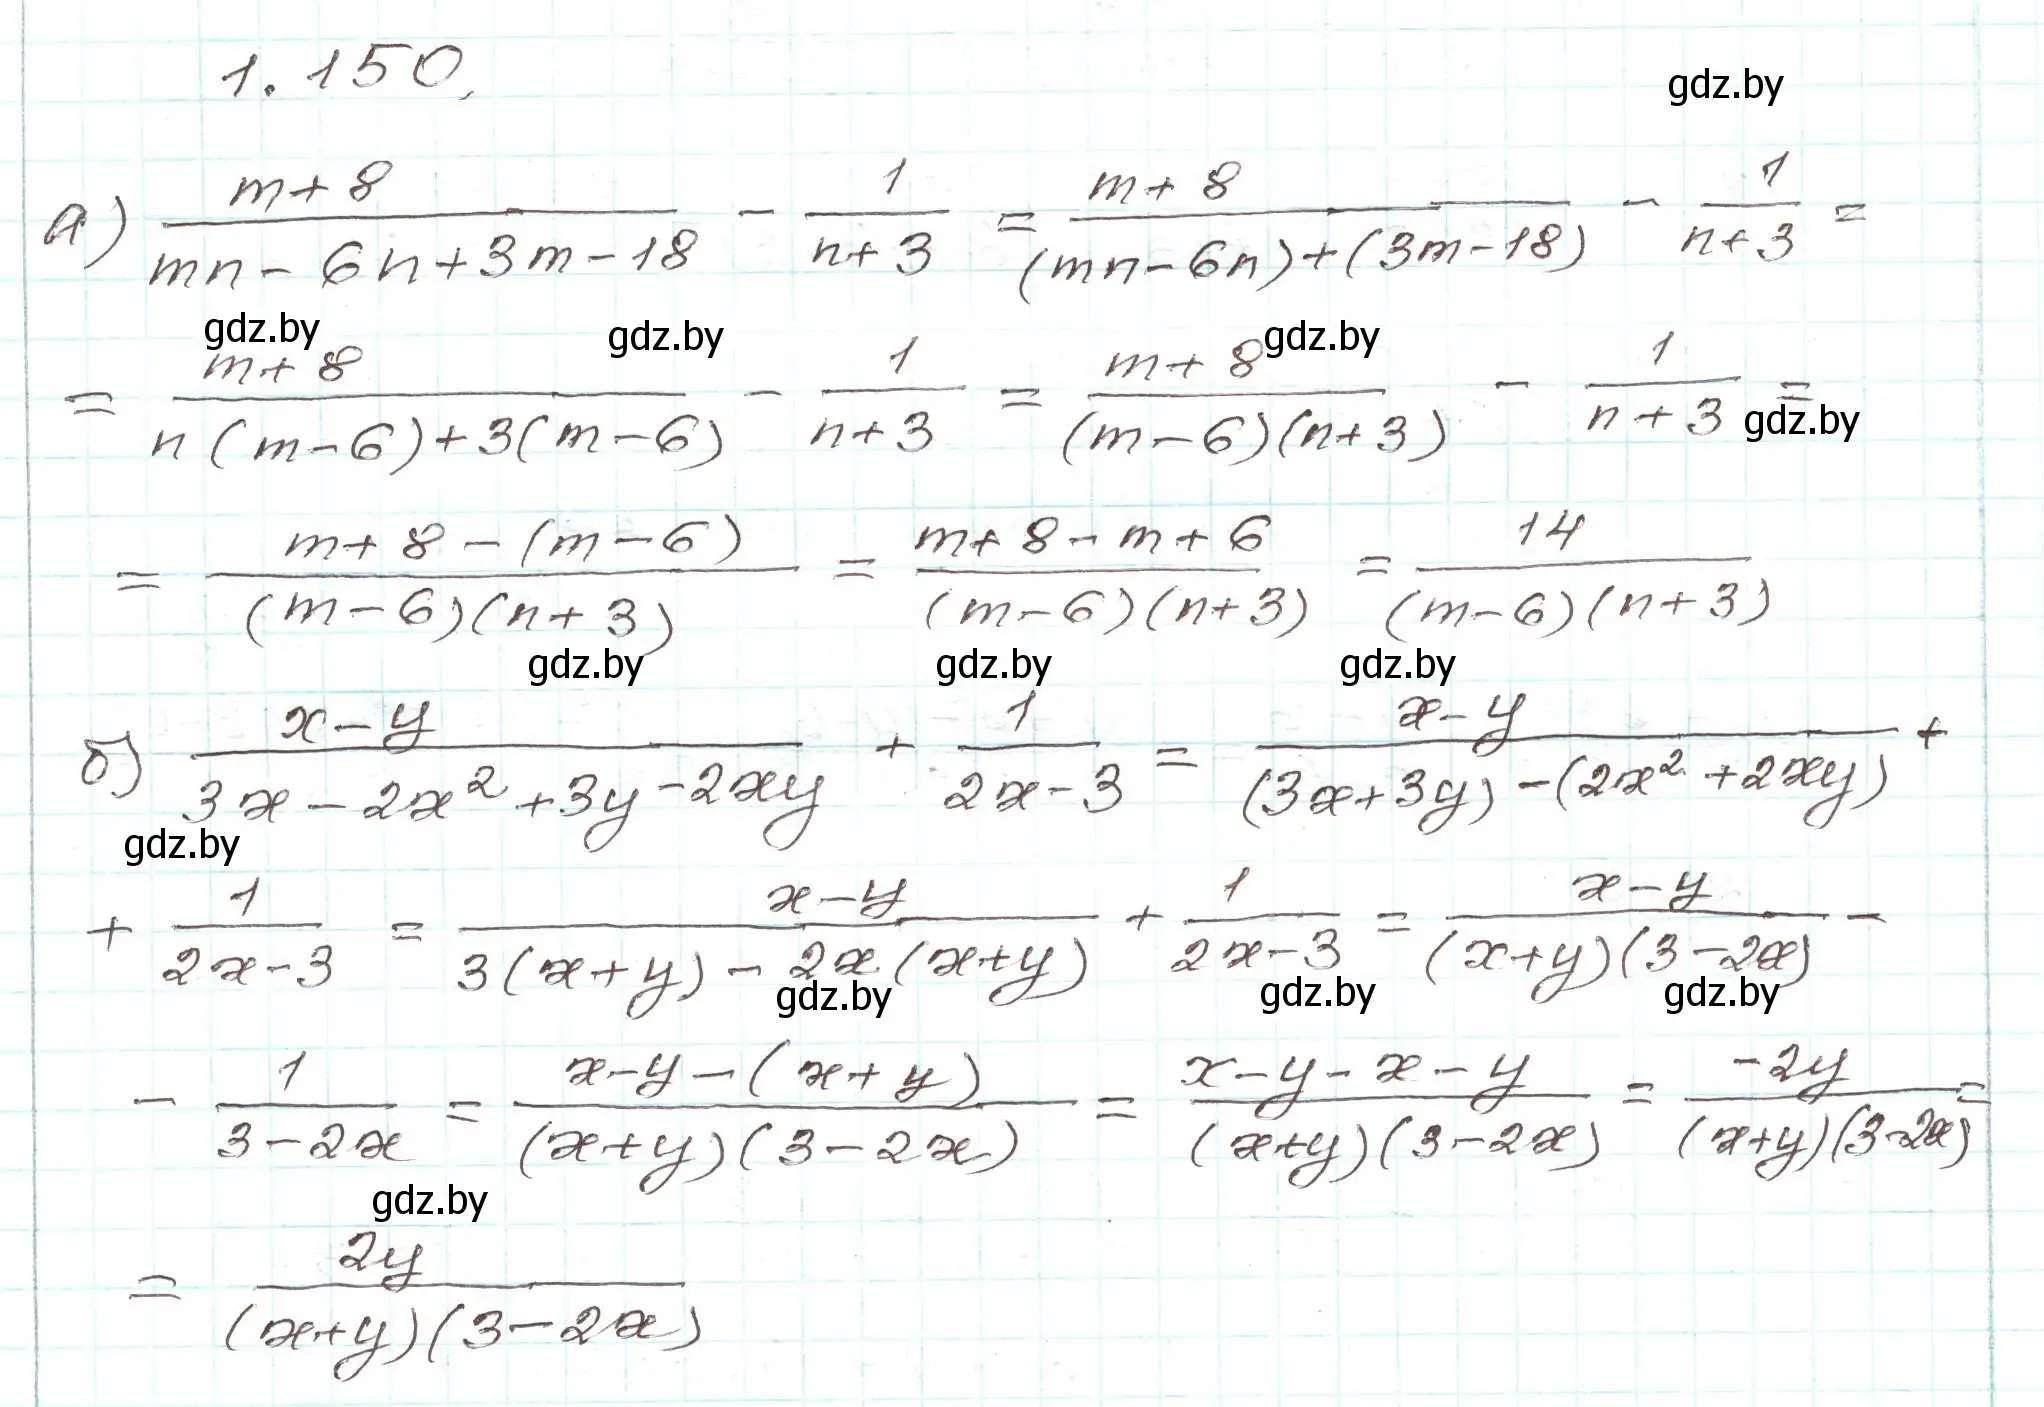 1.150.
gdz.by
а) (m+8)/(mn-6n+3m-18) - 1/(n+3) = (m+8)/((mn-6n)+(3m-18)) - 1/(n+3) =
gdz.by gdz.by gdz.by
= (m+8)/(n(m-6)+3(m-6)) - 1/(n+3) = (m+8)/((m-6)(n+3)) - 1/(n+3) =
gdz.by
= (m+8-(m-6))/((m-6)(n+3)) = (m+8-m+6)/((m-6)(n+3)) = 14/((m-6)(n+3))
gdz.by gdz.by gdz.by
б) (x-y)/(3x-2x²+3y-2xy) + 1/(2x-3) = (x-y)/((3x+3y)-(2x²+2xy)) +
gdz.by
+ 1/(2x-3) = (x-y)/(3(x+y)-2x(x+y)) + 1/(2x-3) = (x-y)/((x+y)(3-2x)) -
gdz.by gdz.by gdz.by
- 1/(3-2x) = (x-y-(x+y))/((x+y)(3-2x)) = (x-y-x-y)/((x+y)(3-2x)) = (-2y)/((x+y)(3-2x)) =
gdz.by
= 2y/((x+y)(3-2x))